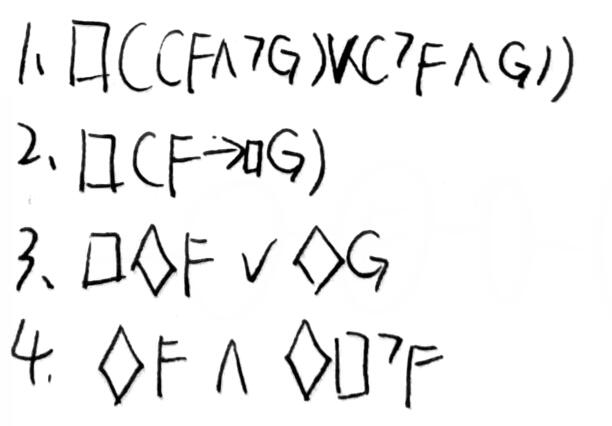 1、□((F∧¬G)∨(¬F∧G))
2、□(F→□G)
3、□◇F ∨ ◇G
4. ◇F ∧ ◇□¬F